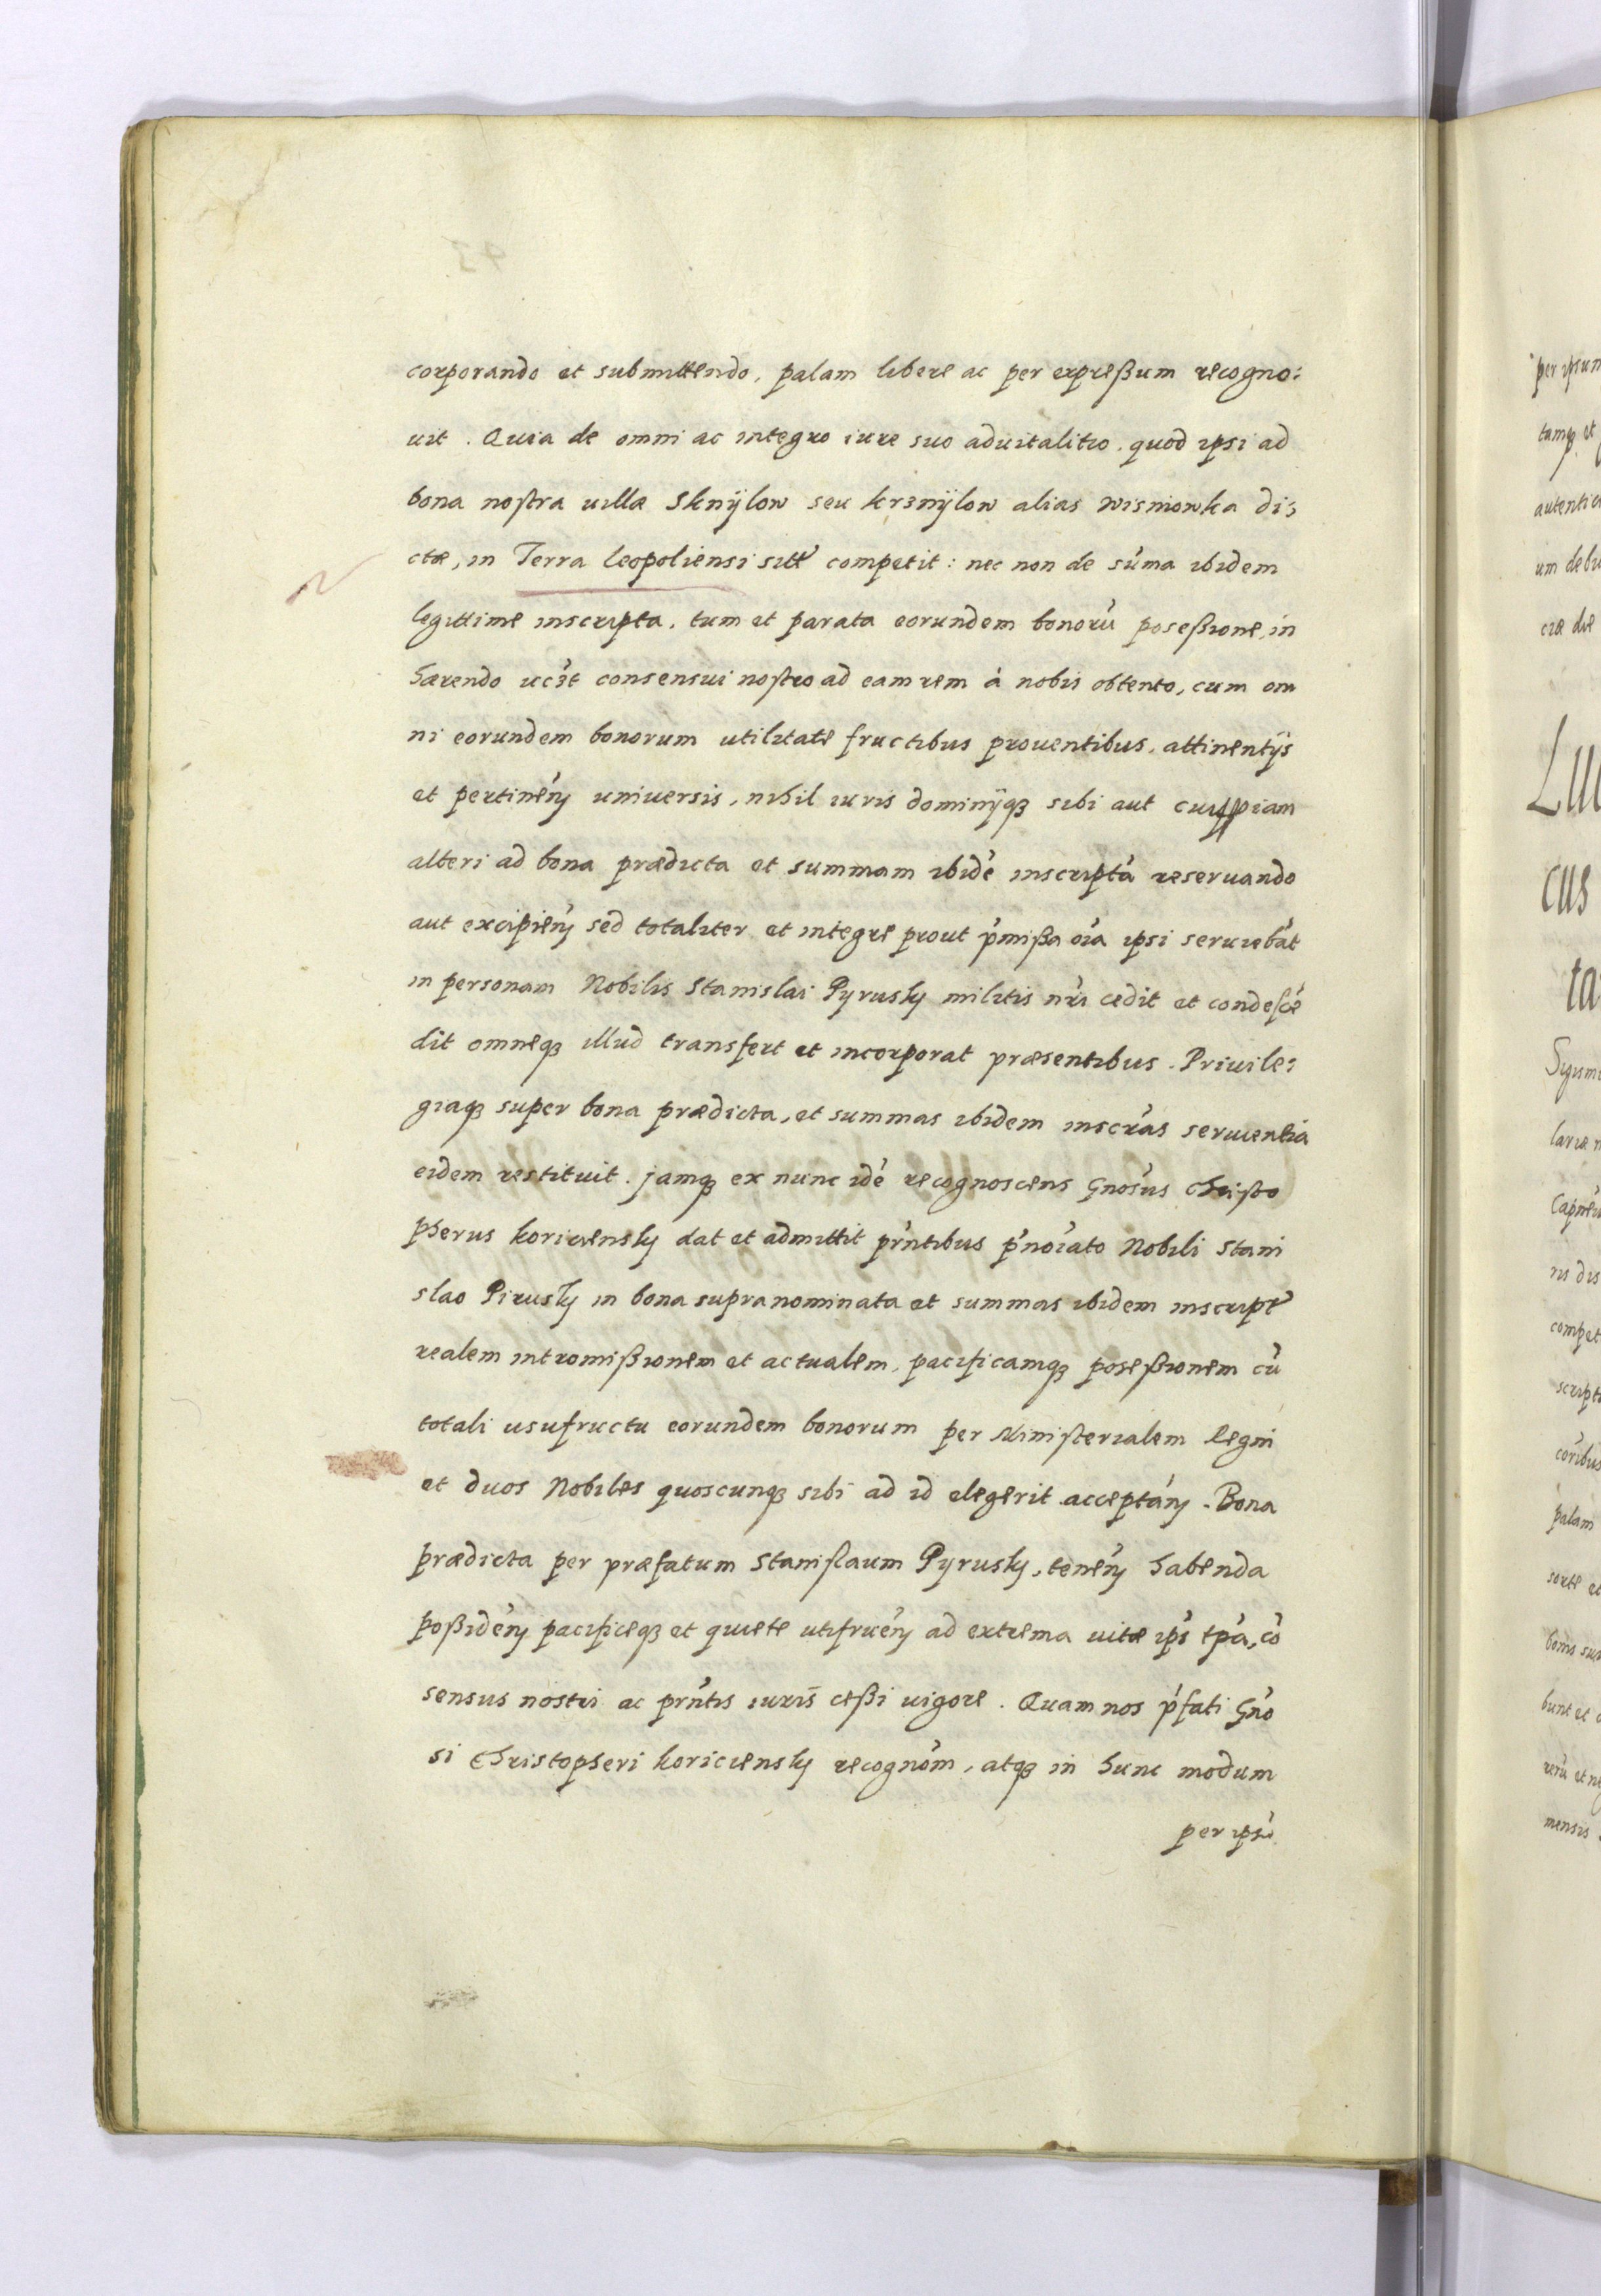 corporando et submittendo, palam libere ac per expreßum recogno:
uit. Quia de omni ac integro iure suo aduitalitio, quod ipsi ad
bona nostra uillæ Sknÿlow seu krznÿlow alias wisniowka di:
ctæ, in Terra leopoliensi sitt' competit: nec non de sum̃a ibidem
legittime inscripta, tum et parata eorundem bonorũ poseßione, in
hærendo uczt consensui nostro ad eam rem à nobis obtento, cum om
ni eorundem bonorum utilitate fructibus prouentibus, attinentÿs
et pertineñ uniuersis, nihil iuris dominÿqȝ sibi aut cuippiam
alteri ad bona prædicta et summam ibidẽ inscriptã reseruando
aut excipieñ sed totaliter et integre prout p̃mißa oĩa ipsi seruiebãt
in personam Nobilis Stanislai Pyrusky militis nr̃i cedit et condescẽ
dit omneqȝ illud transfert et incorporat præsentibus. Priuile:
giaqȝ super bona prædicta, et summas ibidem inscrãs seruientia
eidem restituit. jamqȝ ex nunc idẽ recognoscens Gnõsus Christo
pherus koriciensky dat et admittit pr̃ntibus p̃noĩato Nobili Stani
slao Pirusky in bona supranominata et summas ibidem inscript'
realem intromißionem et actualem, pacificamqȝ poseßionem cũ
totali usufructu eorundem bonorum per Ministerialem Regni
et duos Nobiles quoscunqȝ sibi ad id elegerit acceptañ. Bona
prædicta per præfatum Stanislaum Pyrusky, teneñ habenda
poßideñ pacificeqȝ et quiete utifrueñ ad extrema uitæ ip̃s tp̃a, cõ
sensus nostri ac pr̃ntis iuris̄ ceßi uigore. Quam nos p̃fati Gño
si Christopheri koriciensky recognõm, atqȝ in hunc modum
per ipsũ